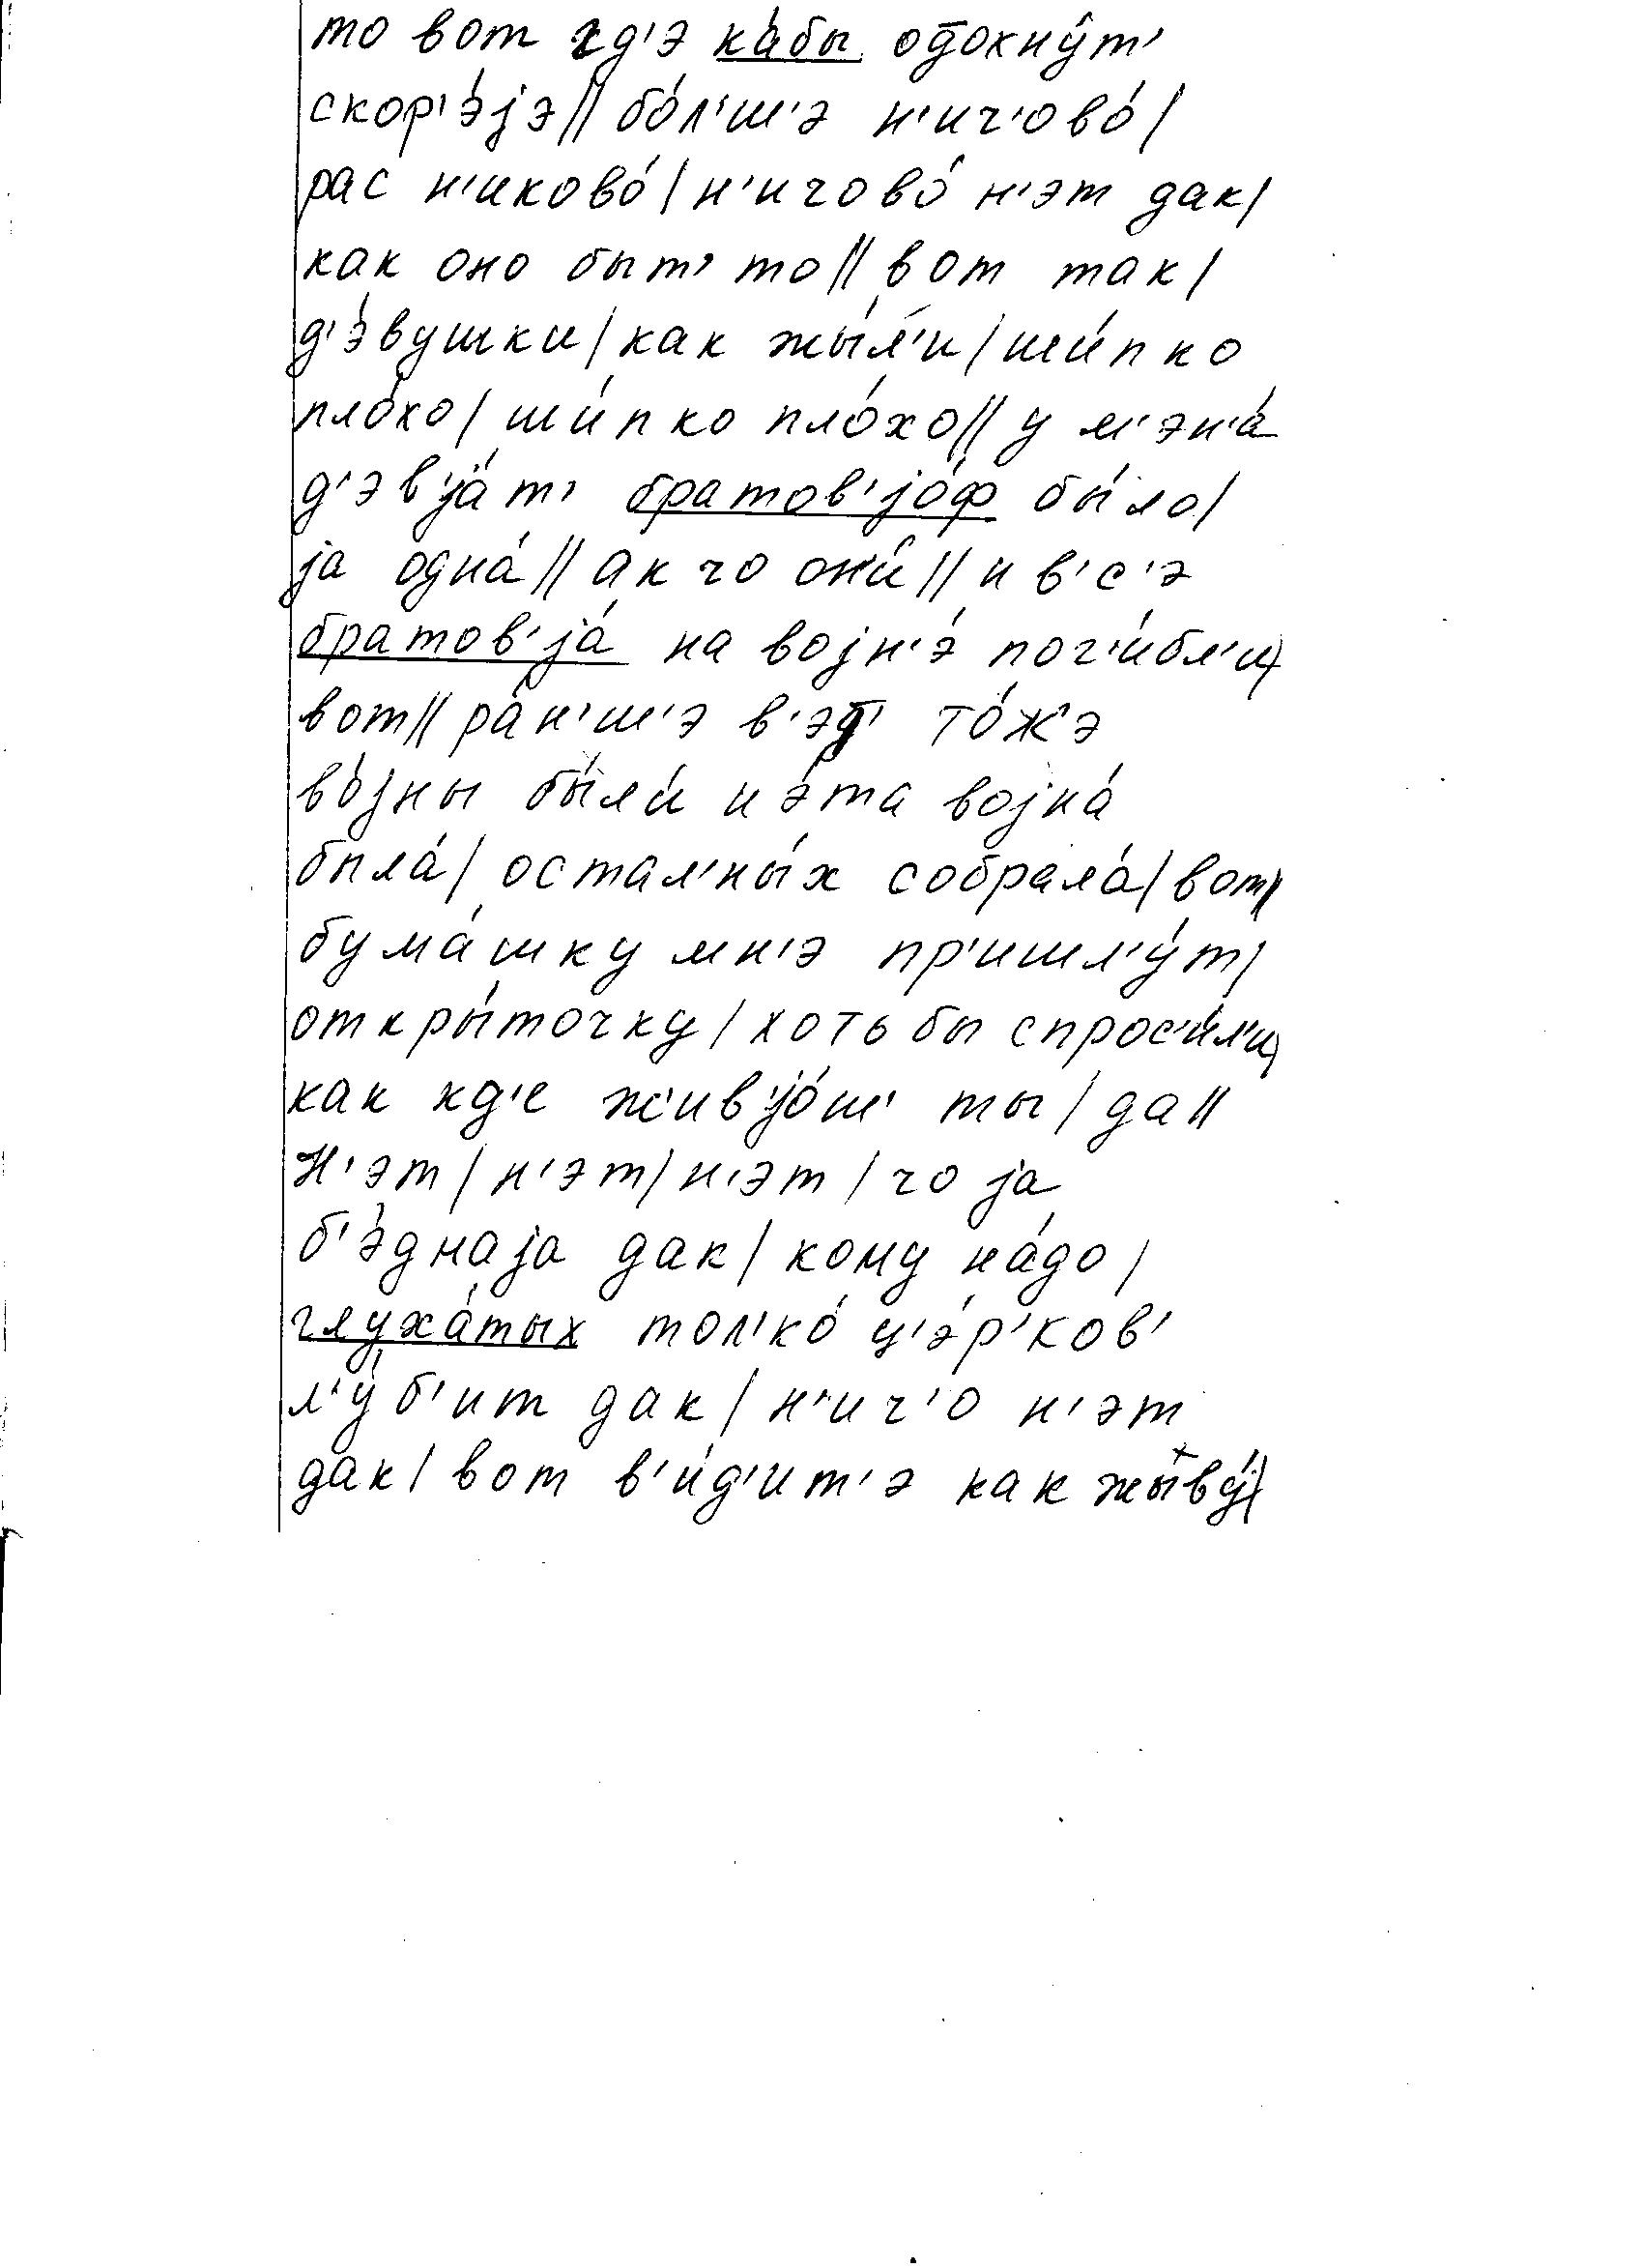 то вот гд'э ка́бы одохну́т'
скор'э́jэ|| бо́л'ш'э н'ич'ово́|
рас н'иково́| н'ичово́ н'эт дак|
как оно быт' то|| вот так|
д'э́вушки| как жы́л'и| ши́пко
пло́хо| ши́пко пло́хо|| у м'эн'а́
д'эв'jа́т' братов'jо́ф бы́ло|
jа одна́|| ак чо он'и́|| и в'с'э
братов'jа́ на воjн'э́ пог'и́бл'и|
вот|| ра́н'ш'э в'эд' то́ж'э
во́jны бы́ли́ и э́та воjна́
была́| остал'ны́х собрала́| вот|
бума́шку мн'э пр'ишл'у́т|
откры́точку| хоть бы спрос'и́л'и|
как кд'е ж'ив'jо́ш' ты| да||
Н'эт| н'эт| н'эт| чо jа
б'э́днаjа дак| кому на́до|
глуха́тых тол'ко́ ц'э́р'ков'
л'у́б'ит дак| н'ич'о н'эт
дак| вот в'и́д'ит'э как жыву́||